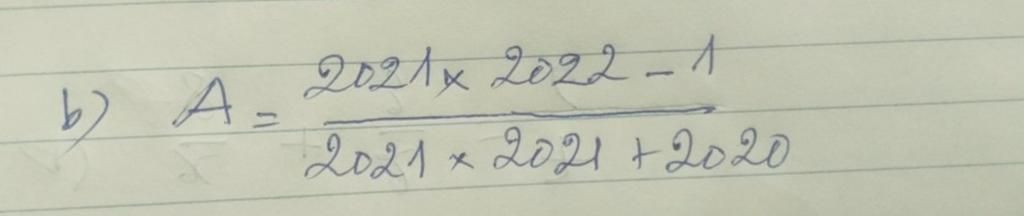 b) A = 2021 x 2022 - 1
2021 x 2021 + 2020